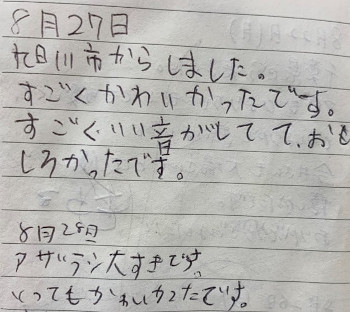 8月27日
旭川市からしました。
すごくかわいかったです。
すごくいい音がしてて、おも
しろかったです。
8月28日
アザラシ大すきです。
とってもかわいかったです。